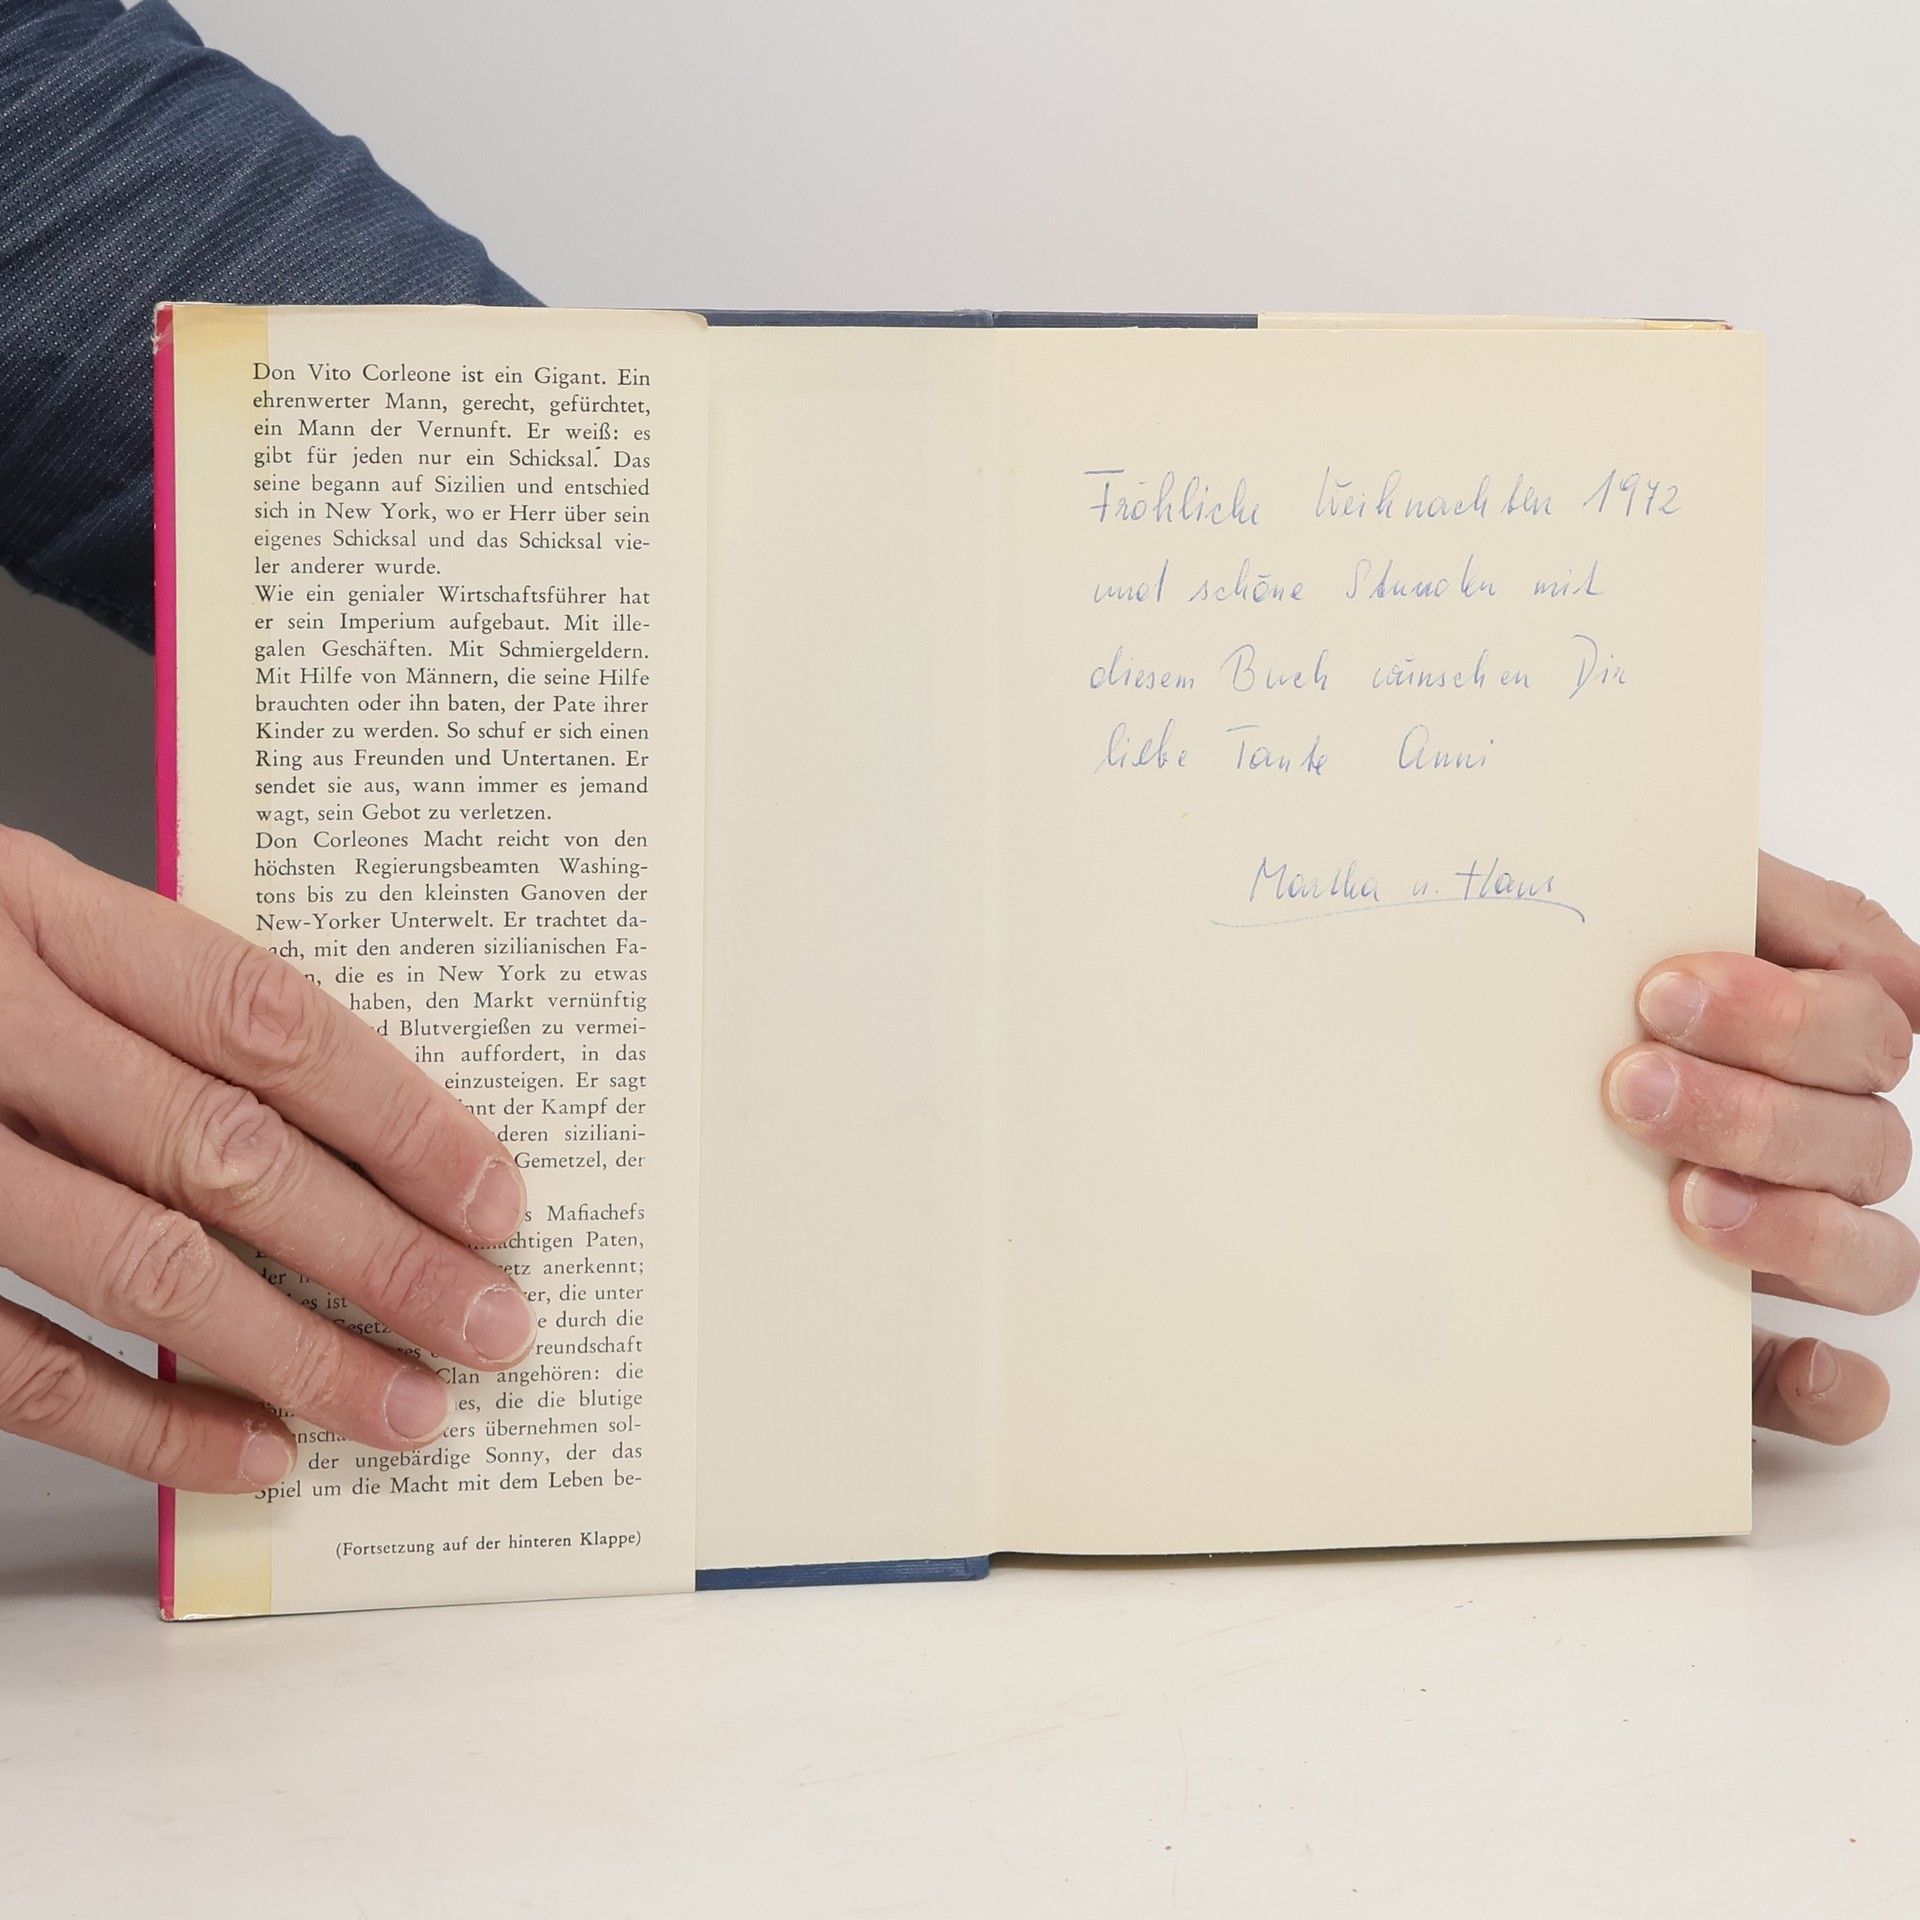 Don Vito Corleone ist ein Gigant. Ein
ehrenwerter Mann, gerecht, gefürchtet,
ein Mann der Vernunft. Er weiß: es
gibt für jeden nur ein Schicksal. Das
seine begann auf Sizilien und entschied
sich in New York, wo er Herr über sein
eigenes Schicksal und das Schicksal vie-
ler anderer wurde.
Wie ein genialer Wirtschaftsführer hat
er sein Imperium aufgebaut. Mit ille-
galen Geschäften. Mit Schmiergeldern.
Mit Hilfe von Männern, die seine Hilfe
brauchten oder ihn baten, der Pate ihrer
Kinder zu werden. So schuf er sich einen
Ring aus Freunden und Untertanen. Er
sendet sie aus, wann immer es jemand
wagt, sein Gebot zu verletzen.
Don Corleones Macht reicht von den
höchsten Regierungsbeamten Washing-
tons bis zu den kleinsten Ganoven der
New-Yorker Unterwelt. Er trachtet da-
mit den anderen sizilianischen Fa-
die es in New York zu etwas
haben, den Markt vernünftig
Blutvergießen zu vermei-
ihn auffordert, in das
einzusteigen. Er sagt
der Kampf der
siziliani-
Gemetzel, der
Mafiachefs
Paten,
anerkennt;
es ist die unter
durch die
Clan angehören: die
die die blutige
übernehmen sol-
der ungebärdige Sonny, der das
Spiel um die Macht mit dem Leben be-
(Fortsetzung auf der hinteren Klappe)
Fröhliche Weihnachten 1972
und schöne Stunden mit
diesem Buch wünschen Dir
liebe Tante Anni
Martha u. Hans